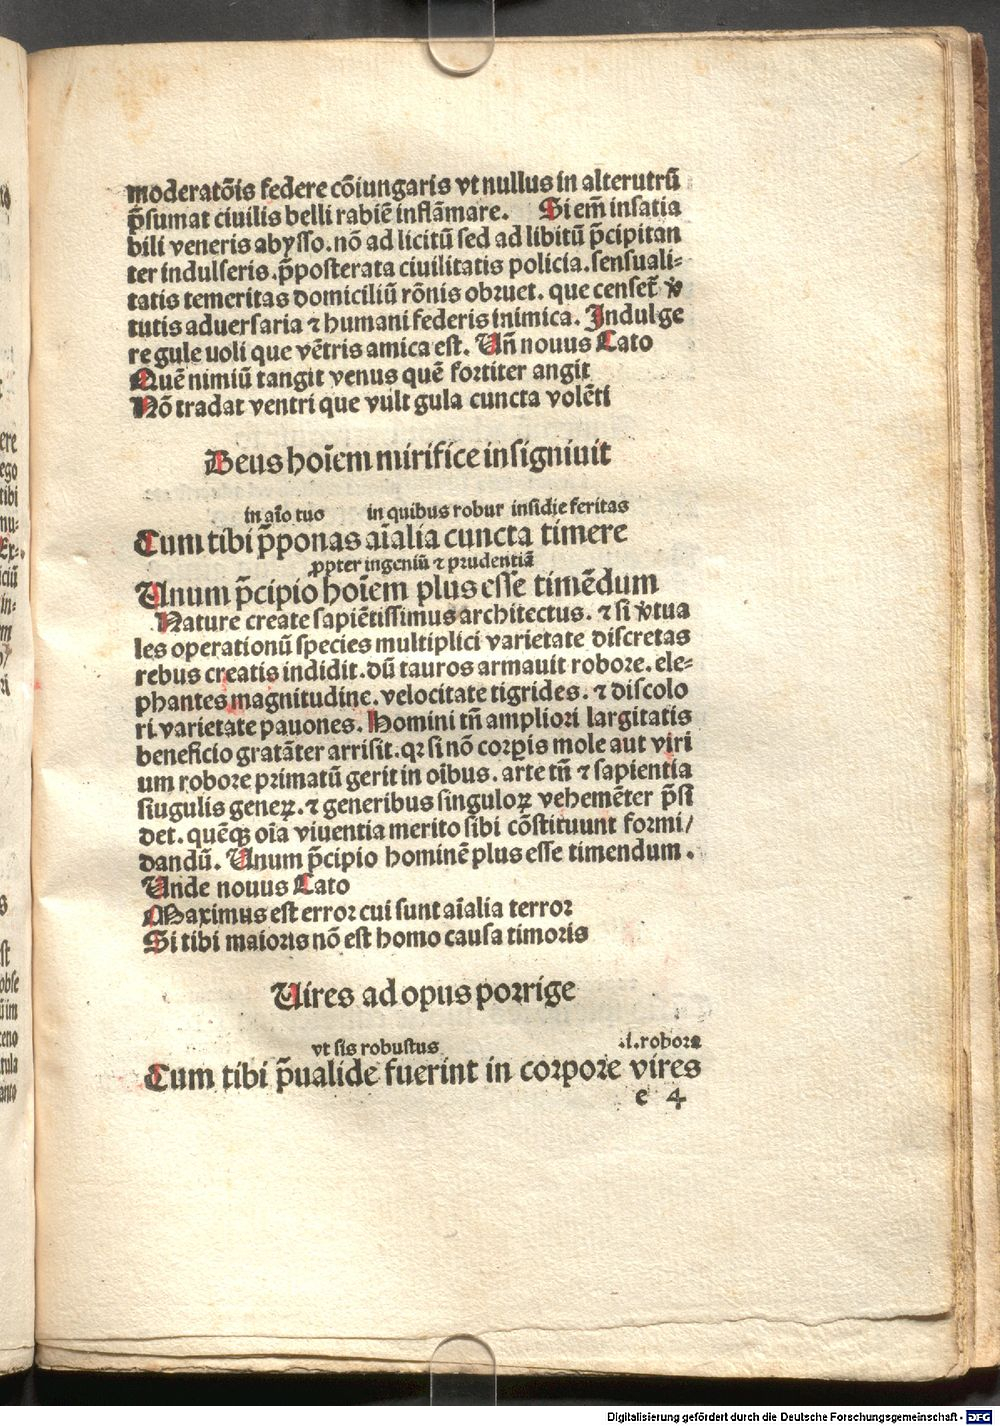 moderatōis federe cōiungaris vt nullus in alterutrū
p̄sumat ciuilis belli rabiē inflāmare. Si em̄ insatia
bili veneris abysso. nō ad licitū sed ad libitū p̄cipitan
ter indulseris. p̄posterata ciuilitatis policia. sensuali⸗
tatis temeritas domiciliū rōnis obꝛuet. que censet᷑ v̾
tutis aduersaria ⁊ humani federis inimica. Indulge
re gule uoli que vētris amica est. Un̄ nouus Cato
Quē nimiū tangit venus quē foꝛtiter angit
Nō tradat ventri que vult gula cuncta volēti
Deus hoīem mirifice insigniuit
in aīo tuo in quibus robur insidie feritas
Cum tibi p̄ponas aīalia cuncta timere
ꝓpter ingeniū ⁊ prudentiā
Unum p̄cipio hoīem plus esse timēdum
Nature create sapiētissimus architectus. ⁊ si v̾tua
les operationū species multiplici varietate discretas
rebus creatis indidit. dū tauros armauit roboꝛe. ele⸗
phantes magnitudine. velocitate tigrides. ⁊ discolo
ri varietate pauones. Homini tn̄ amplioꝛi largitatis
beneficio gratāter arrisit. qꝛ si nō coꝛꝑis mole aut viri
um roboꝛe primatū gerit in oībus. arte tn̄ ⁊ sapientia
siugulis geneꝝ. ⁊ generibus singuloꝝ vehemēter p̄si
det. quēqꝫ oīa viuentia merito sibi cōstituunt foꝛmi/
dandū. Unum p̄cipio hominē plus esse timendum.
Unde nouus Cato
Maximus est erroꝛ cui sunt aīalia terroꝛ
Si tibi maioꝛis nō est homo causa timoꝛis
Uires ad opus poꝛrige
vt sis robustus .i. roboꝛa
Cum tibi p̄ualide fuerint in coꝛpoꝛe vires
e 4
Digitalisierung gefördert durch die Deutsche Forschungsgemeinschaft - DFG